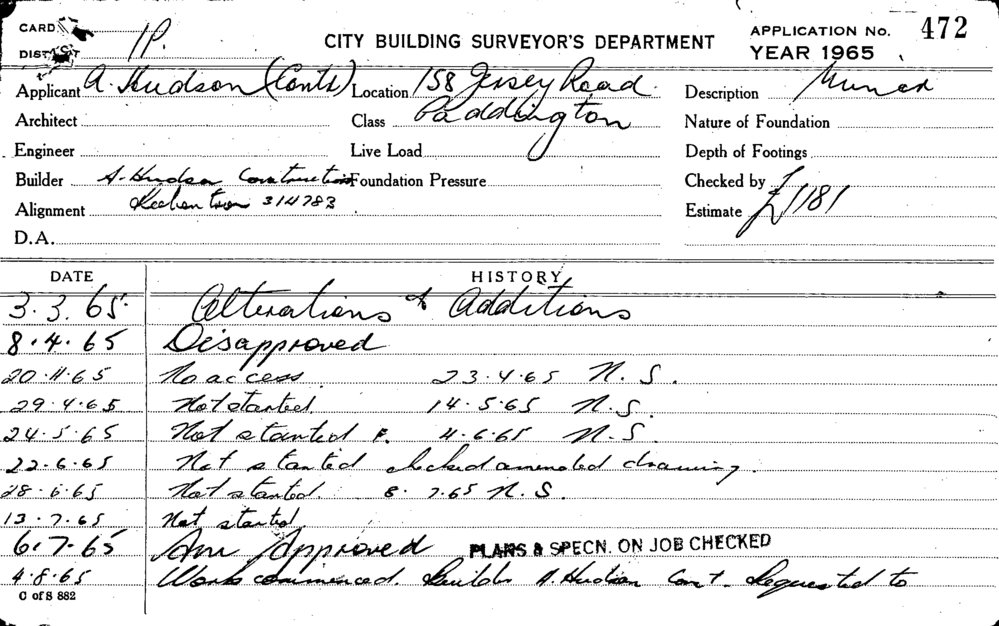 CARD
1P. CITY BUILDING SURVEYOR'S DEPARTMENT APPLICATION No. 472
DISTRICT YEAR 1965
Applicant A. Hudson (Conts) Location 158 Jersey Road Description
Architect Class Paddington Nature of Foundation
Engineer Live Load Depth of Footings
Builder A. Hudson Construction Foundation Pressure Checked by
Alignment 314783 Estimate £1181
D.A.
DATE HISTORY
3.3.65 Alterations & Additions
8.4.65 Disapproved
20.4.65 No access. 23.4.65 N.S.
29.4.65 Not started. 14.5.65 N.S.
24.5.65 Not started F. 4.6.65 N.S.
22.6.65 Not started checked amended drawing.
28.6.65 Not started. 8.7.65 N.S.
13.7.65 Not started
6.7.65 Am Approved PLANS & SPECN. ON JOB CHECKED
4.8.65 Work commenced. Builder A. Hudson Const. Requested to
C of S 882